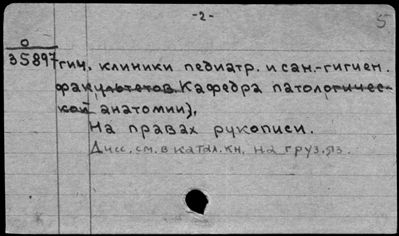 -2-
5
0
35897
гич. клиники педиатр. и сан.-гигиен.
факультетов. Кафедра патологичес-
кой анатомии).
На правах рукописи.
Дисс. см. в катал. кн. на груз. яз.